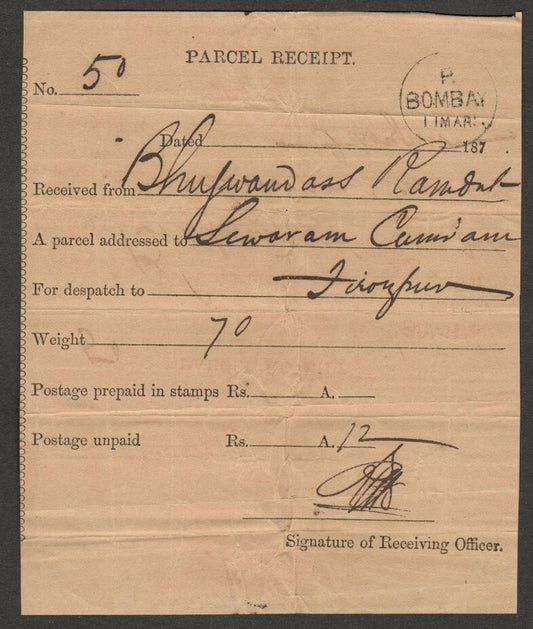 PARCEL RECEIPT.
No. 50
P.
BOMBAY
11 MAR.
Dated 187
Received from Bhugwandass Ramdut
A parcel addressed to Sewaram
For despatch to
Weight 70
Postage prepaid in stamps Rs. A.
Postage unpaid Rs. A. 12
Signature of Receiving Officer.